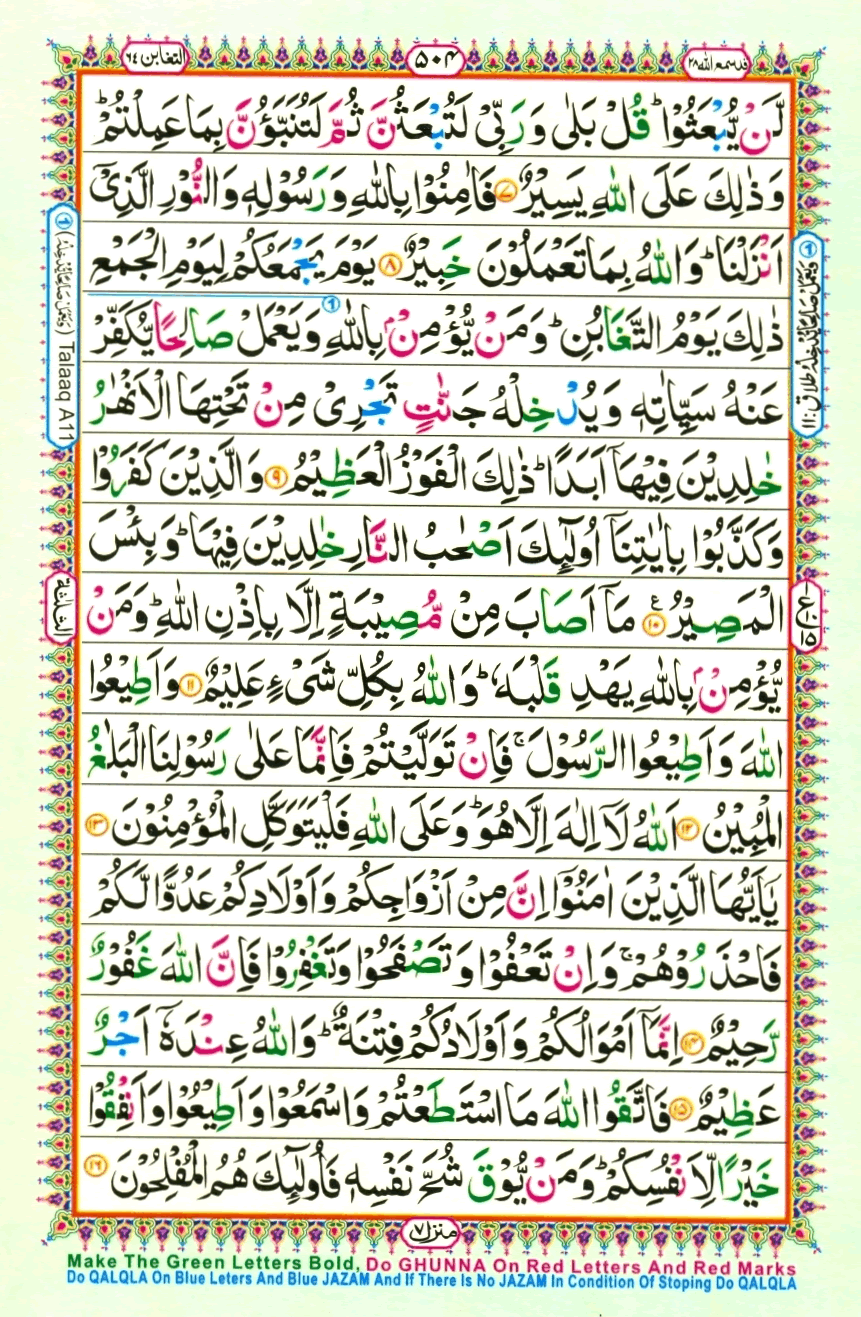 قد سمع الله ٢٨
٥٠٤
التغابن ٦٤
لَّنْ يُّبْعَثُوْا ؕ قُلْ بَلٰى وَرَبِّىْ لَتُبْعَثُنَّ ثُمَّ لَتُنَبَّؤُنَّ بِمَا عَمِلْتُمْ ؕ
وَذٰلِكَ عَلَى اللّٰهِ يَسِيْرٌ ۝٧ فَاٰمِنُوْا بِاللّٰهِ وَرَسُوْلِهٖ وَالنُّوْرِ الَّذِىْۤ
اَنْزَلْنَا ؕ وَاللّٰهُ بِمَا تَعْمَلُوْنَ خَبِيْرٌ ۝٨ يَوْمَ يَجْمَعُكُمْ لِيَوْمِ الْجَمْعِ
ذٰلِكَ يَوْمُ التَّغَابُنِ ؕ وَمَنْ يُّؤْمِنْۢ بِاللّٰهِ وَيَعْمَلْ صَالِحًا يُّكَفِّرْ
عَنْهُ سَيِّاٰتِهٖ وَيُدْخِلْهُ جَنّٰتٍ تَجْرِىْ مِنْ تَحْتِهَا الْاَنْهٰرُ
خٰلِدِيْنَ فِيْهَاۤ اَبَدًا ؕ ذٰلِكَ الْفَوْزُ الْعَظِيْمُ ۝٩ وَالَّذِيْنَ كَفَرُوْا
وَكَذَّبُوْا بِاٰيٰتِنَاۤ اُولٰٓئِكَ اَصْحٰبُ النَّارِ خٰلِدِيْنَ فِيْهَا ؕ وَبِئْسَ
الْمَصِيْرُ ۝١٠ ع مَاۤ اَصَابَ مِنْ مُّصِيْبَةٍ اِلَّا بِاِذْنِ اللّٰهِ ؕ وَمَنْ
يُّؤْمِنْۢ بِاللّٰهِ يَهْدِ قَلْبَهٗ ؕ وَاللّٰهُ بِكُلِّ شَىْءٍ عَلِيْمٌ ۝١١ وَاَطِيْعُوا
اللّٰهَ وَاَطِيْعُوا الرَّسُوْلَ ۚ فَاِنْ تَوَلَّيْتُمْ فَاِنَّمَا عَلٰى رَسُوْلِنَا الْبَلٰغُ
الْمُبِيْنُ ۝١٢ اَللّٰهُ لَاۤ اِلٰهَ اِلَّا هُوَ ؕ وَعَلَى اللّٰهِ فَلْيَتَوَكَّلِ الْمُؤْمِنُوْنَ ۝١٣
يٰۤاَيُّهَا الَّذِيْنَ اٰمَنُوْۤا اِنَّ مِنْ اَزْوَاجِكُمْ وَاَوْلَادِكُمْ عَدُوًّا لَّكُمْ
فَاحْذَرُوْهُمْ ۚ وَاِنْ تَعْفُوْا وَتَصْفَحُوْا وَتَغْفِرُوْا فَاِنَّ اللّٰهَ غَفُوْرٌ
رَّحِيْمٌ ۝١٤ اِنَّمَاۤ اَمْوَالُكُمْ وَاَوْلَادُكُمْ فِتْنَةٌ ؕ وَاللّٰهُ عِنْدَهٗۤ اَجْرٌ
عَظِيْمٌ ۝١٥ فَاتَّقُوا اللّٰهَ مَا اسْتَطَعْتُمْ وَاسْمَعُوْا وَاَطِيْعُوْا وَاَنْفِقُوْا
خَيْرًا لِّاَنْفُسِكُمْ ؕ وَمَنْ يُّوْقَ شُحَّ نَفْسِهٖ فَاُولٰٓئِكَ هُمُ الْمُفْلِحُوْنَ ۝١٦
Talaaq A11
ع
١٥
الثلثة
منزل ٧
Make The Green Letters Bold, Do GHUNNA On Red Letters And Red Marks
Do QALQLA On Blue Leters And Blue JAZAM And If There Is No JAZAM In Condition Of Stoping Do QALQLA